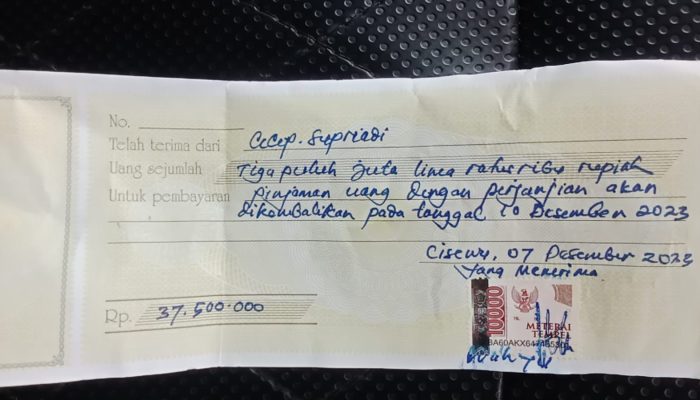 No.
Telah terima dari Cecep. Supriadi
Uang sejumlah Tiga puluh juta lima ratus ribu rupiah
Untuk pembayaran pinjaman uang dengan perjanjian akan
dikembalikan pada tanggal 10 Desember 2023
Cisewu, 07 Desember 2023
Yang Menerima
Rp. 37.500.000
10000
METERAI
TEMPEL